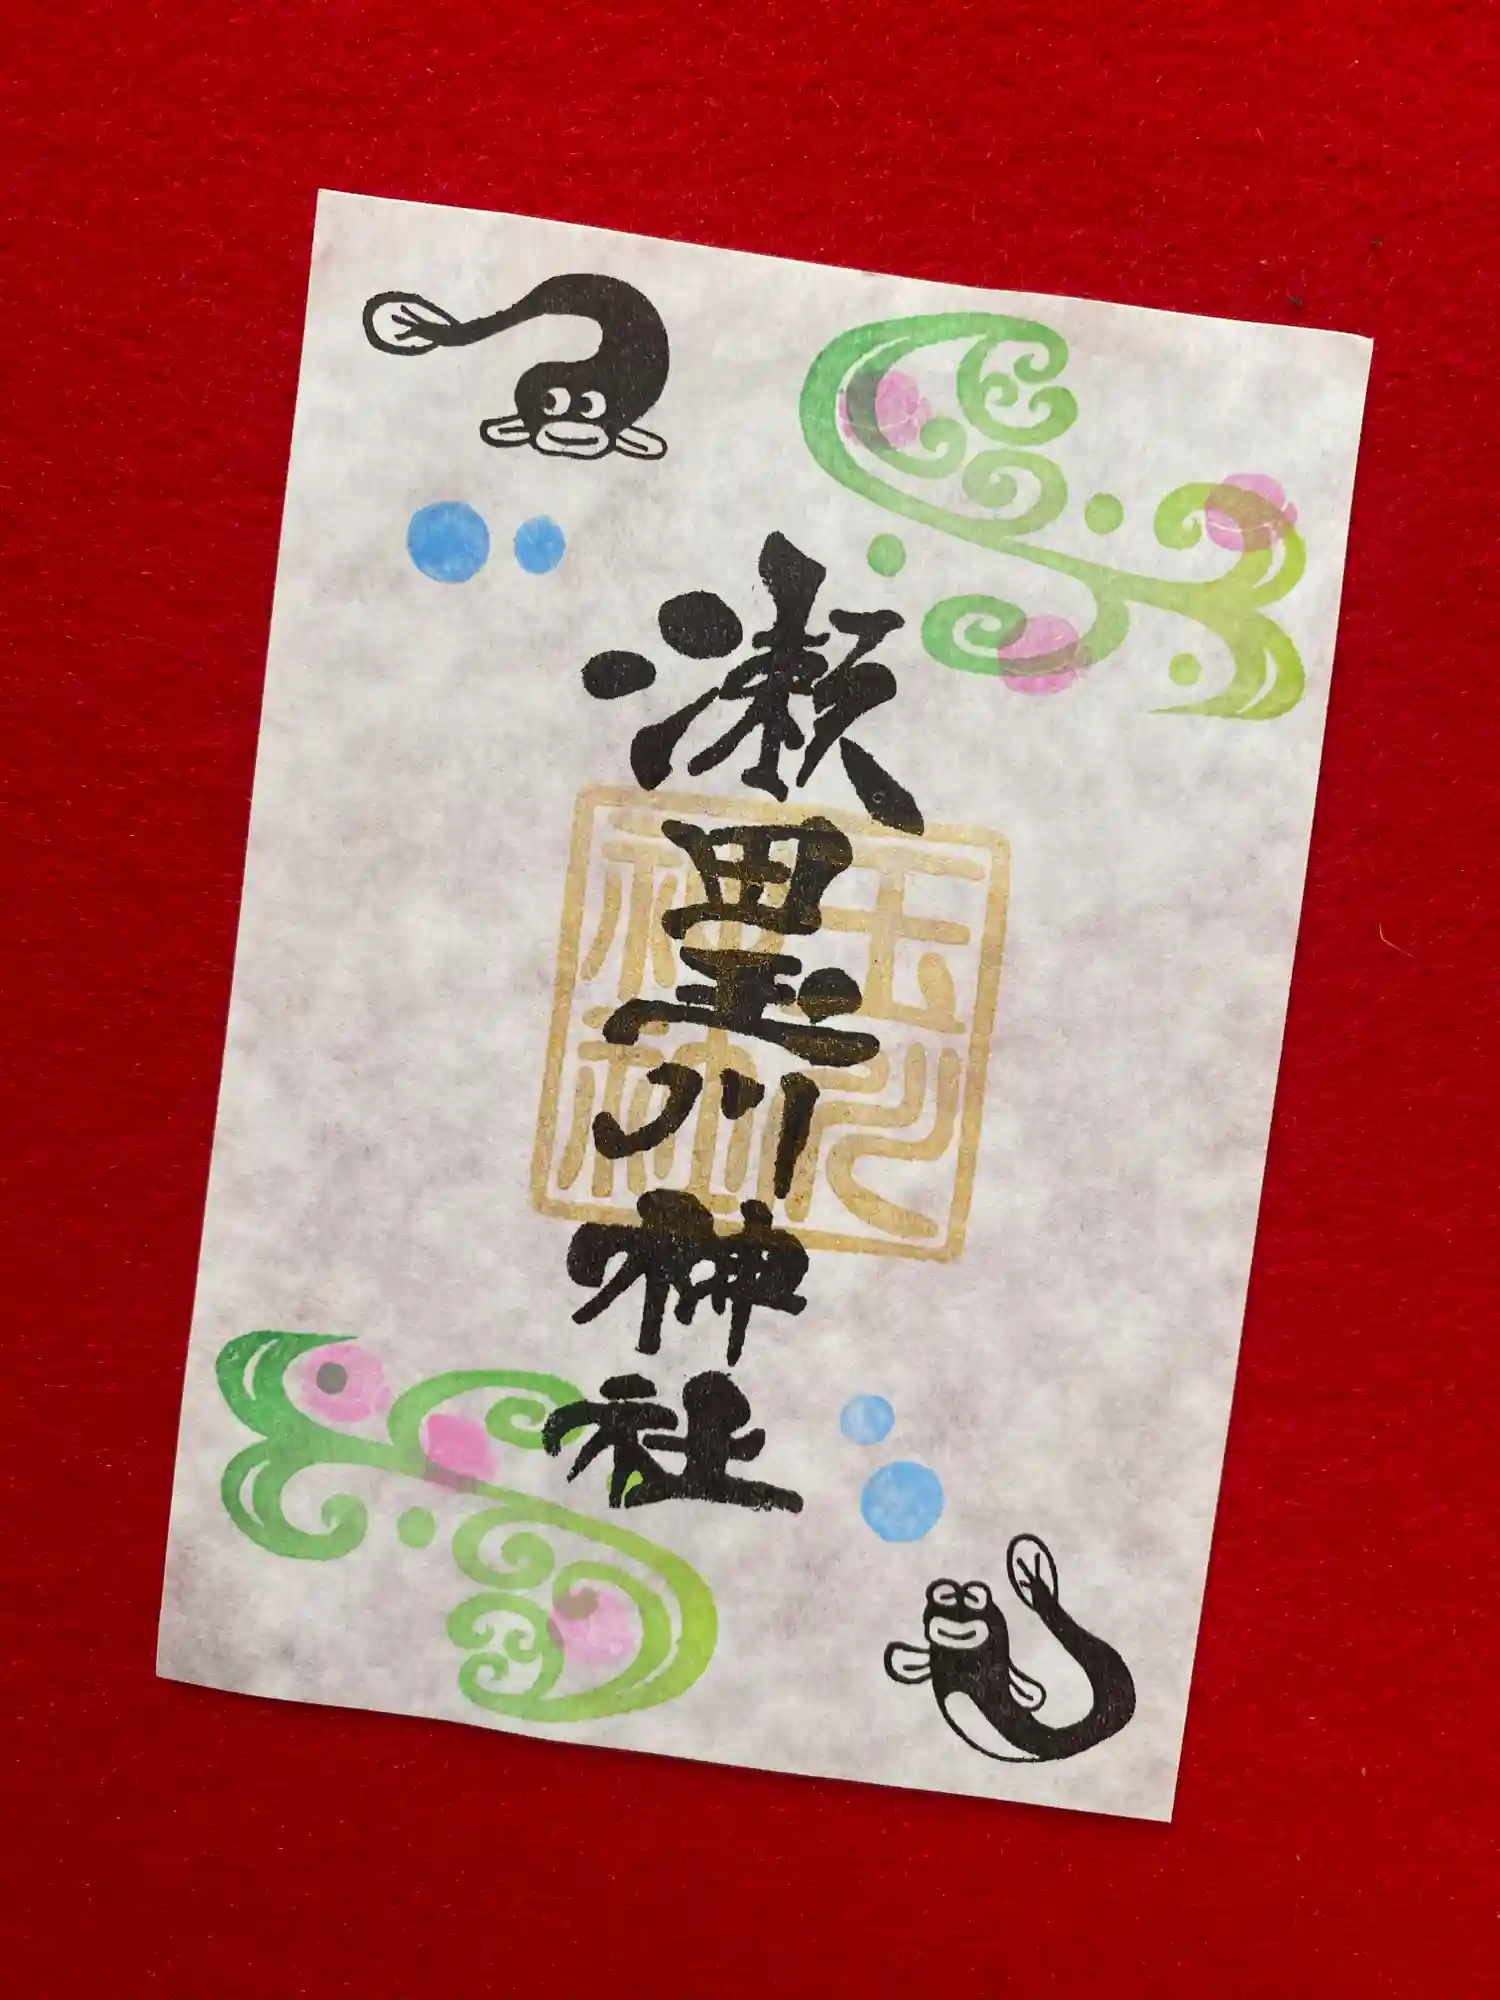 瀬田玉川神社
玉川
神社